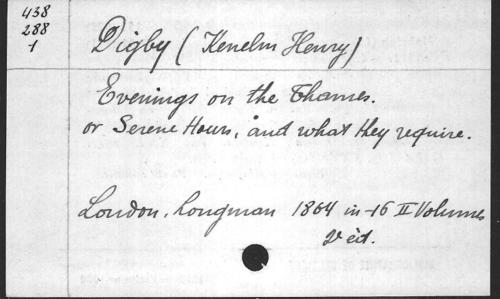 438
288
1
Digby (Kenelm Henry)
Evenings on the Thames.
or Serene Hours, and what they require.
London. Longman 1864 in-16 II Volumes
2 éd.